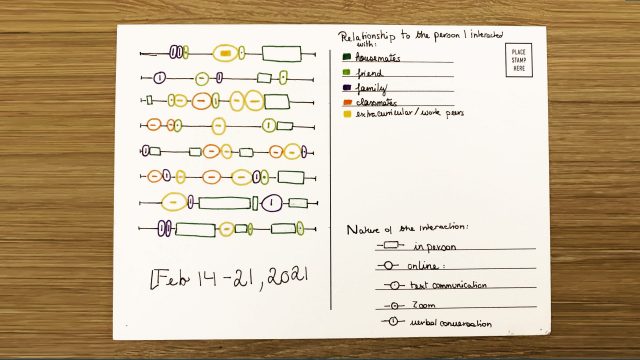 Relationship to the person I interacted
with:
housemates
friend
family
classmates
extracuricular/work peers
PLACE
STAMP
HERE
Feb 14-21, 2021
Nature of the interaction:
in person
online:
text communication
Zoom
verbal conversation